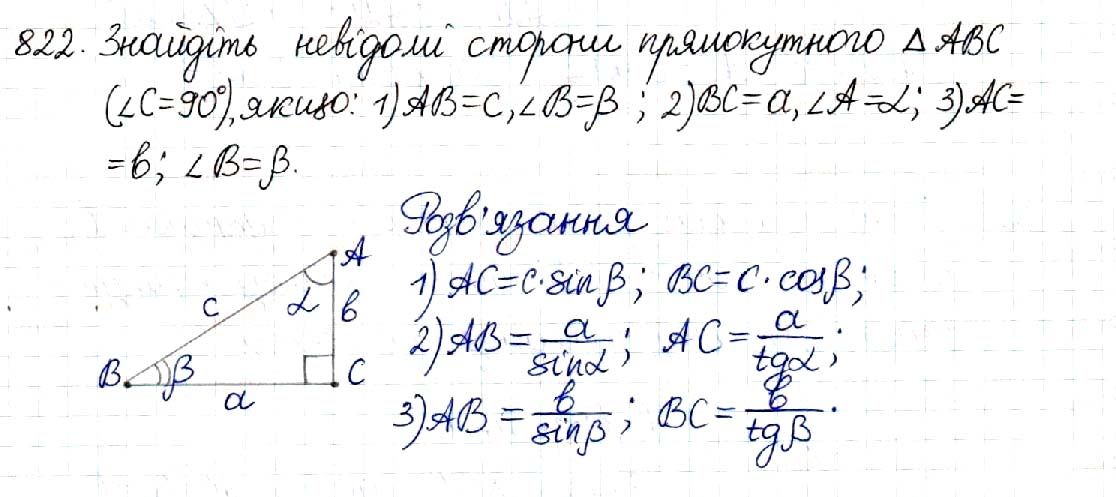 822. Знайдіть невідомі сторони прямокутного △ABC
(∠C=90°), якщо: 1) AB=c, ∠B=β; 2) BC=a, ∠A=α; 3) AC=
=b; ∠B=β.
Розв'язання
1) AC=c·sinβ; BC=c·cosβ;
2) AB=a/sinα; AC=a/tgα;
3) AB=b/sinβ; BC=b/tgβ.
A
c α b
B β C
a